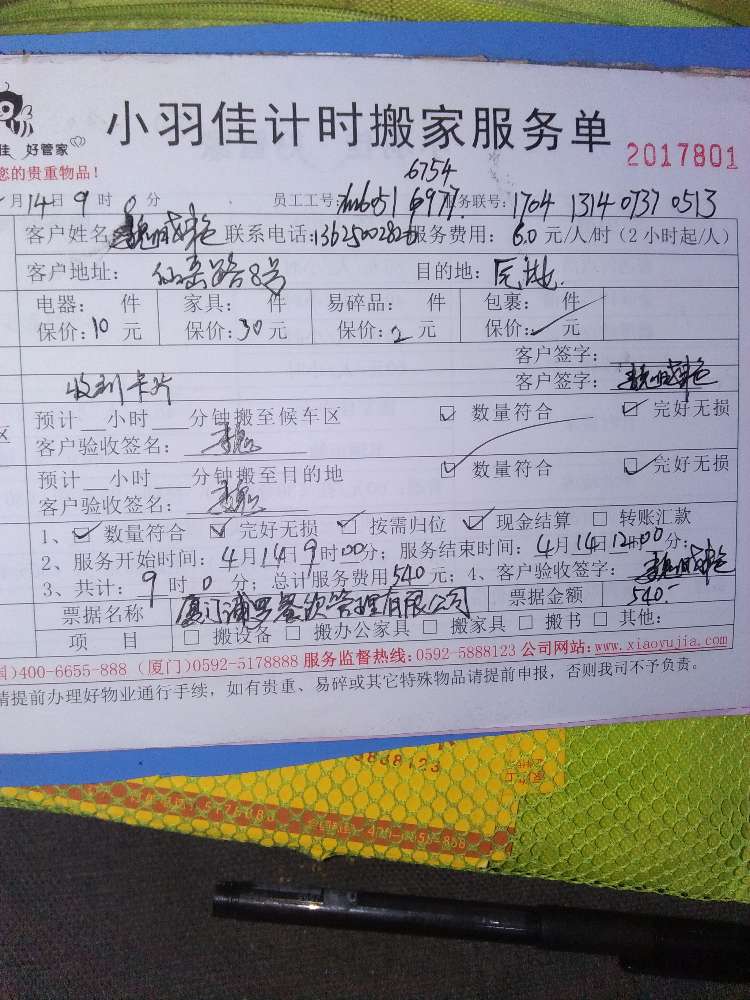 小羽佳计时搬家服务单
佳 好管家
2017801
您的贵重物品!
6754
月14日9时0分 员工工号: 6051 6977 服务联号: 1704 1314 0737 0513
客户姓名 联系电话:13625002820 服务费用: 60元/人/时(2小时起/人)
客户地址: 仙岳路8号 目的地: 原地
电器: 件 家具: 件 易碎品: 件 包裹: 件
保价:10元 保价:30元 保价:2元 保价: 元
客户签字:
收到卡片 客户签字:
区 预计__小时___分钟搬至候车区 ☑ 数量符合 ☑ 完好无损
客户验收签名:
预计__小时___分钟搬至目的地 ☑ 数量符合 ☑ 完好无损
客户验收签名:
1、☑ 数量符合 ☑ 完好无损 ☑ 按需归位 ☑ 现金结算 □ 转账汇款
2、服务开始时间: 4月14月9时00分; 服务结束时间: 4月14月12时00分;
3、共计: 9时0分; 总计服务费用540元; 4、客户验收签字:
票据名称 厦门浦罗餐饮管理有限公司 票据金额 540.-
项 目 □ 搬设备 □ 搬办公家具 □ 搬家具 □ 搬书 □ 其他:
国)400-6655-888 (厦门)0592-5178888 服务监督热线:0592-5888123 公司网站:www.xiaoyujia.com
请提前办理好物业通行手续,如有贵重、易碎或其它特殊物品请提前申报,否则我司不予负责。
5888123